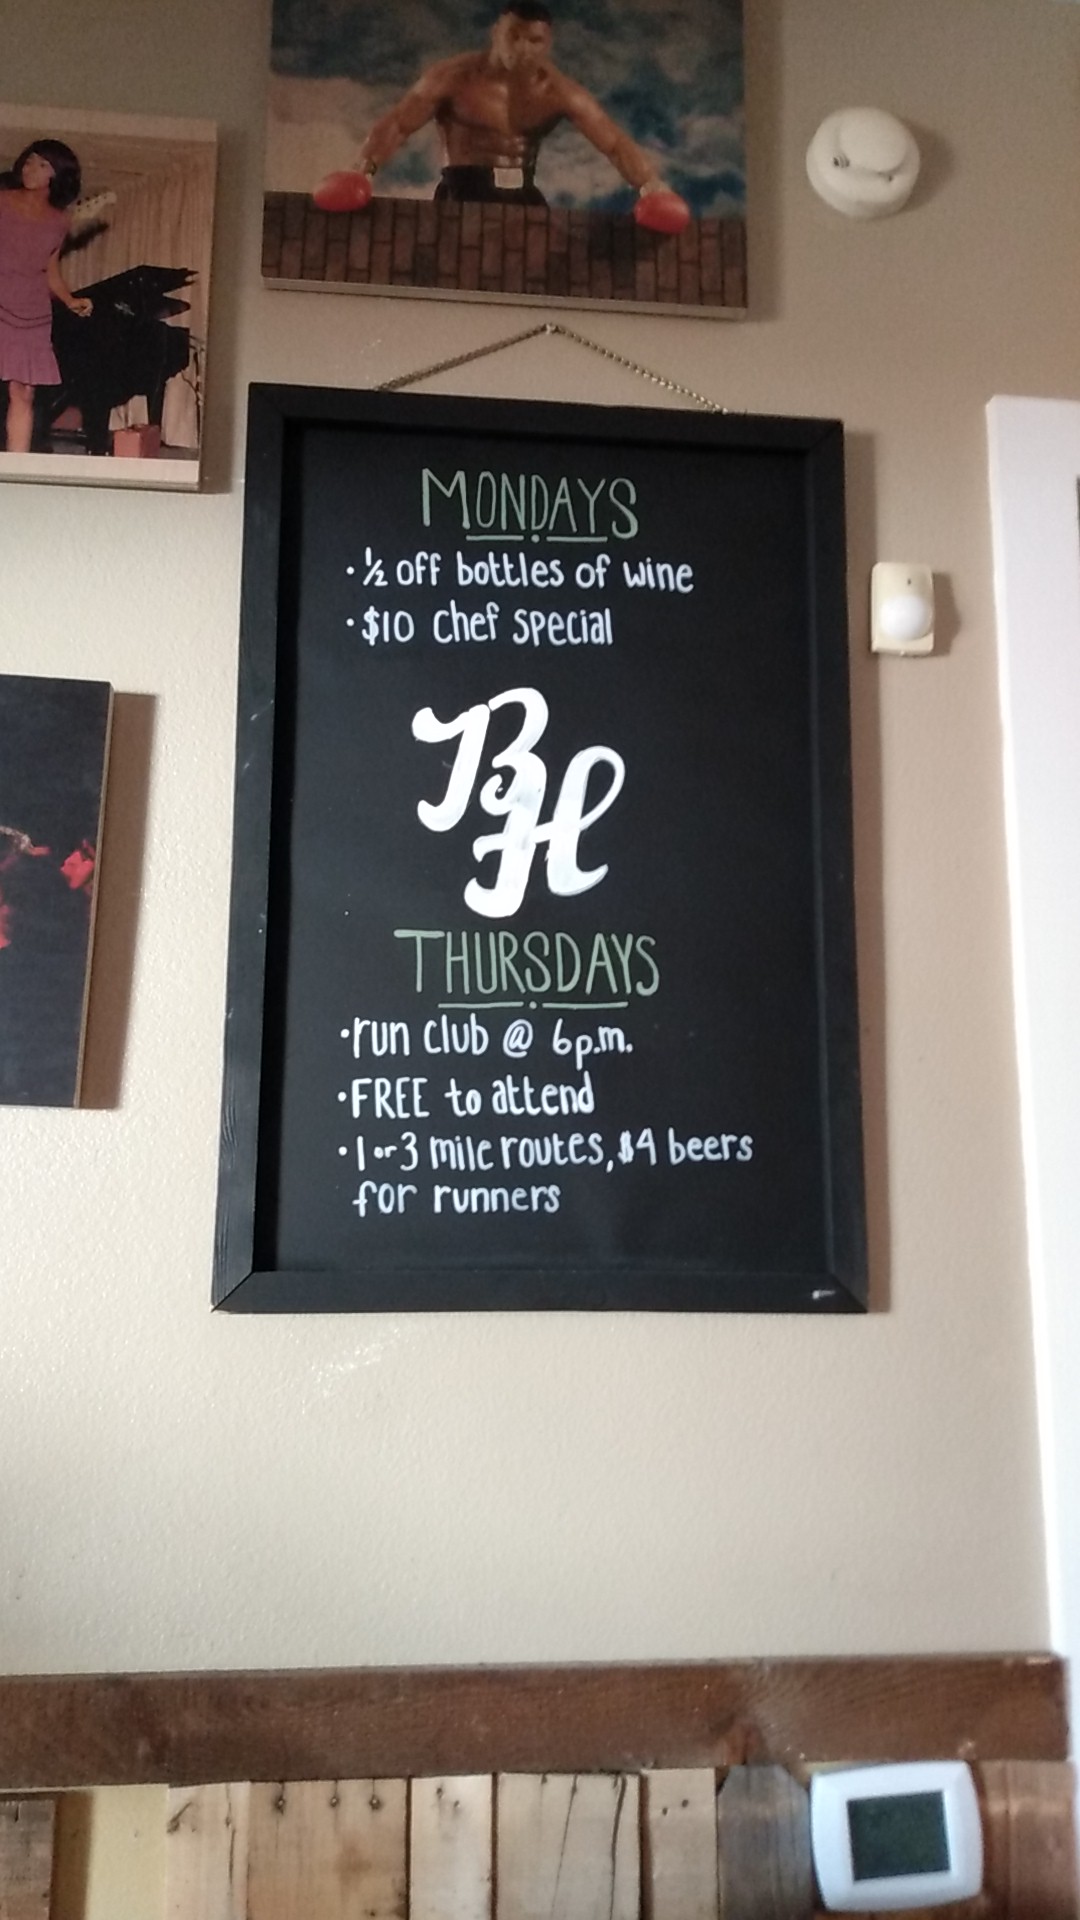 MONDAYS
· ½ off bottles of wine
· $10 chef special
BH
THURSDAYS
· run club @ 6p.m.
· FREE to attend
· 1 or 3 mile routes, $4 beers
for runners